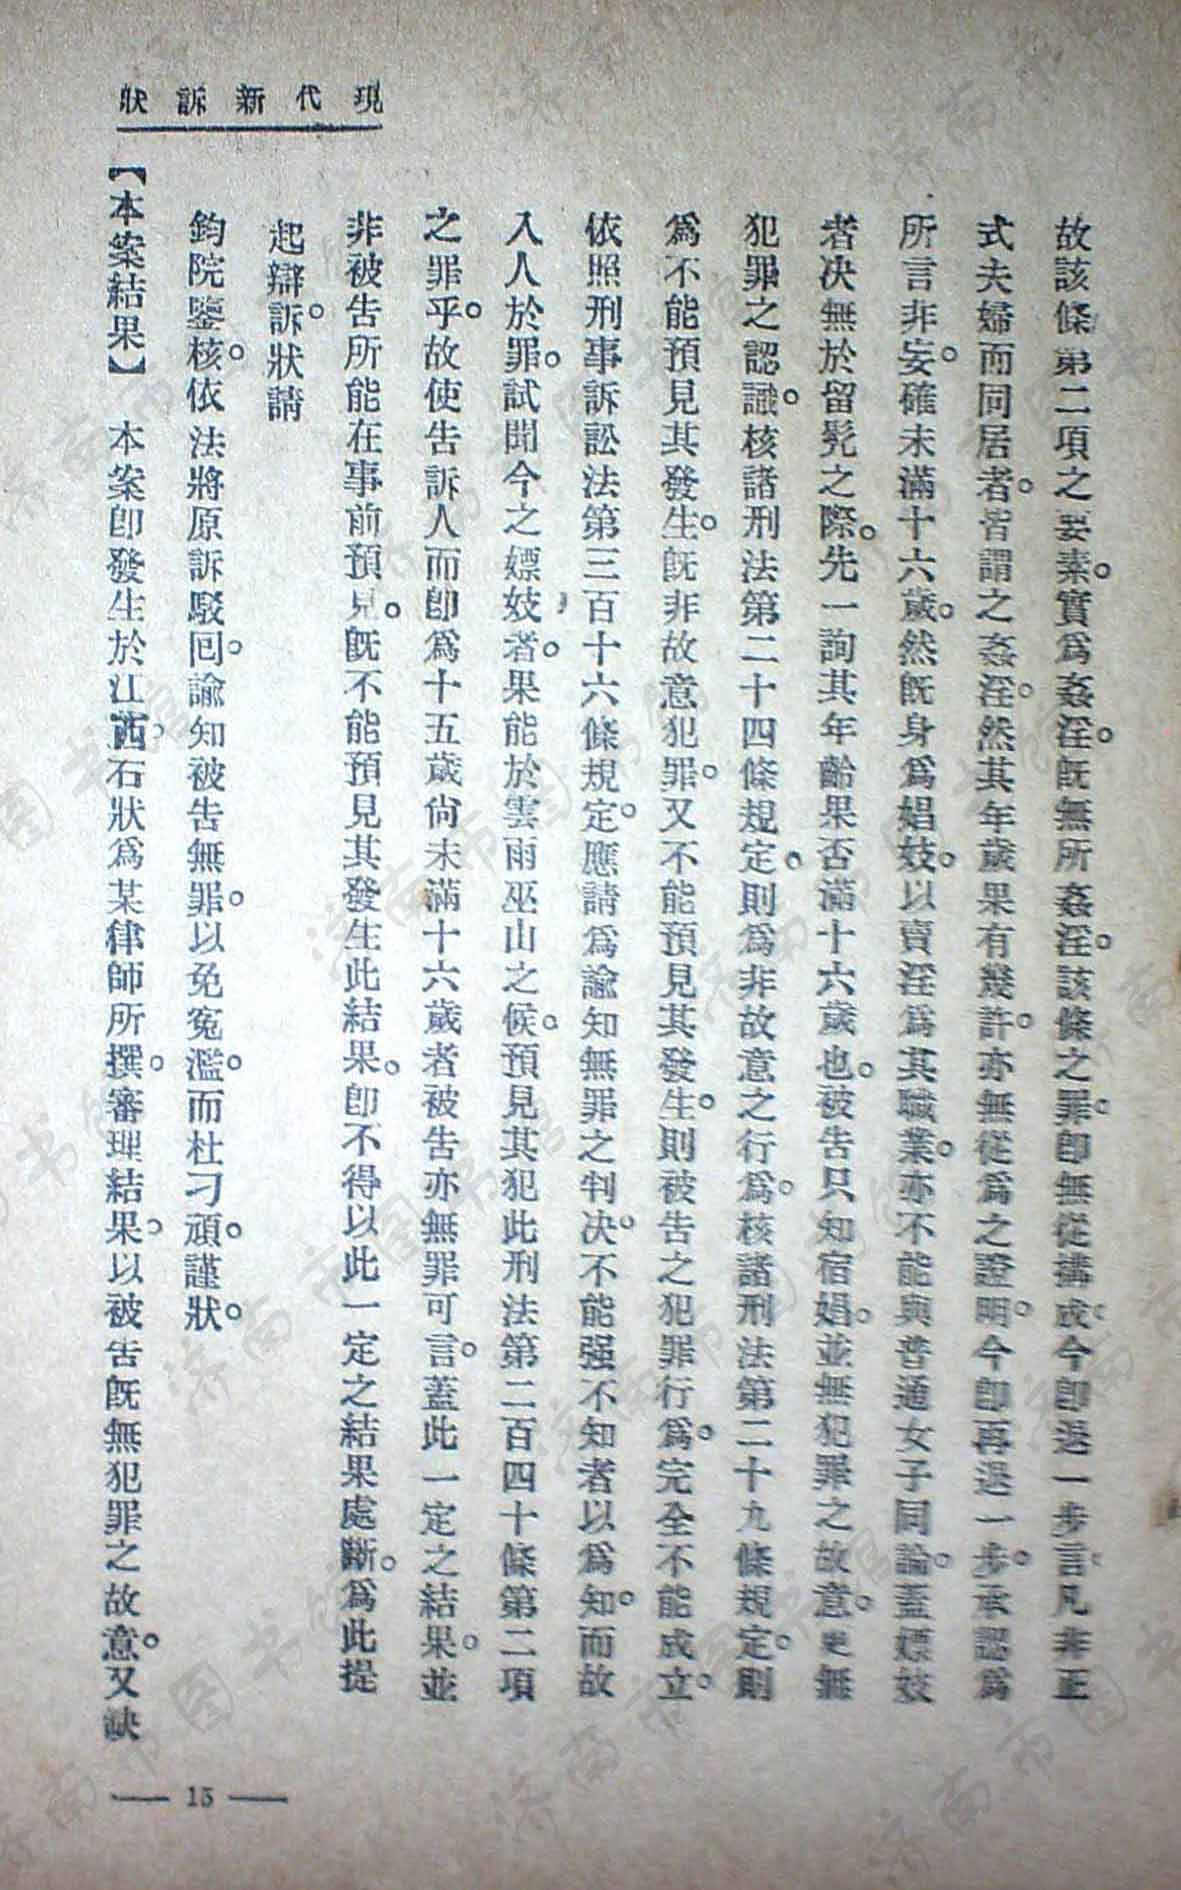 現代新訴狀
故該條第二項之要素。實爲姦淫。旣無所姦淫。該條之罪。卽無從構成。今卽退一步言。凡非正
式夫婦而同居者。皆謂之姦淫。然其年歲果有幾許。亦無從爲之證明。今卽再退一步。承認爲
所言非妄。確未滿十六歲。然旣身爲娼妓。以賣淫爲其職業。亦不能與普通女子同論。蓋嫖妓
者決無於留髡之際。先一詢其年齡果否滿十六歲也。被告只知宿娼。並無犯罪之故意。更無
犯罪之認識。核諸刑法第二十四條規定。則爲非故意之行爲。核諸刑法第二十九條規定。則
爲不能預見其發生。旣非故意犯罪。又不能預見其發生。則被告之犯罪行爲。完全不能成立。
依照刑事訴訟法第三百十六條規定。應請爲諭知無罪之判決。不能强不知者以爲知。而故
入人於罪。試問今之嫖妓者。果能於雲雨巫山之候。預見其犯此刑法第二百四十條第二項
之罪乎。故使告訴人而卽爲十五歲尙未滿十六歲者被告亦無罪可言。蓋此一定之結果。並
非被告所能在事前預見。旣不能預見其發生此結果。卽不得以此一定之結果處斷。爲此提
起辯訴。狀請
鈞院鑒核。依法將原訴駁回。諭知被告無罪。以免冤濫。而杜刁頑。謹狀。
【本案結果】 本案卽發生於江西。右狀爲某律師所撰。審理結果。以被告旣無犯罪之故意。又缺
— 15 —
济南市图书馆